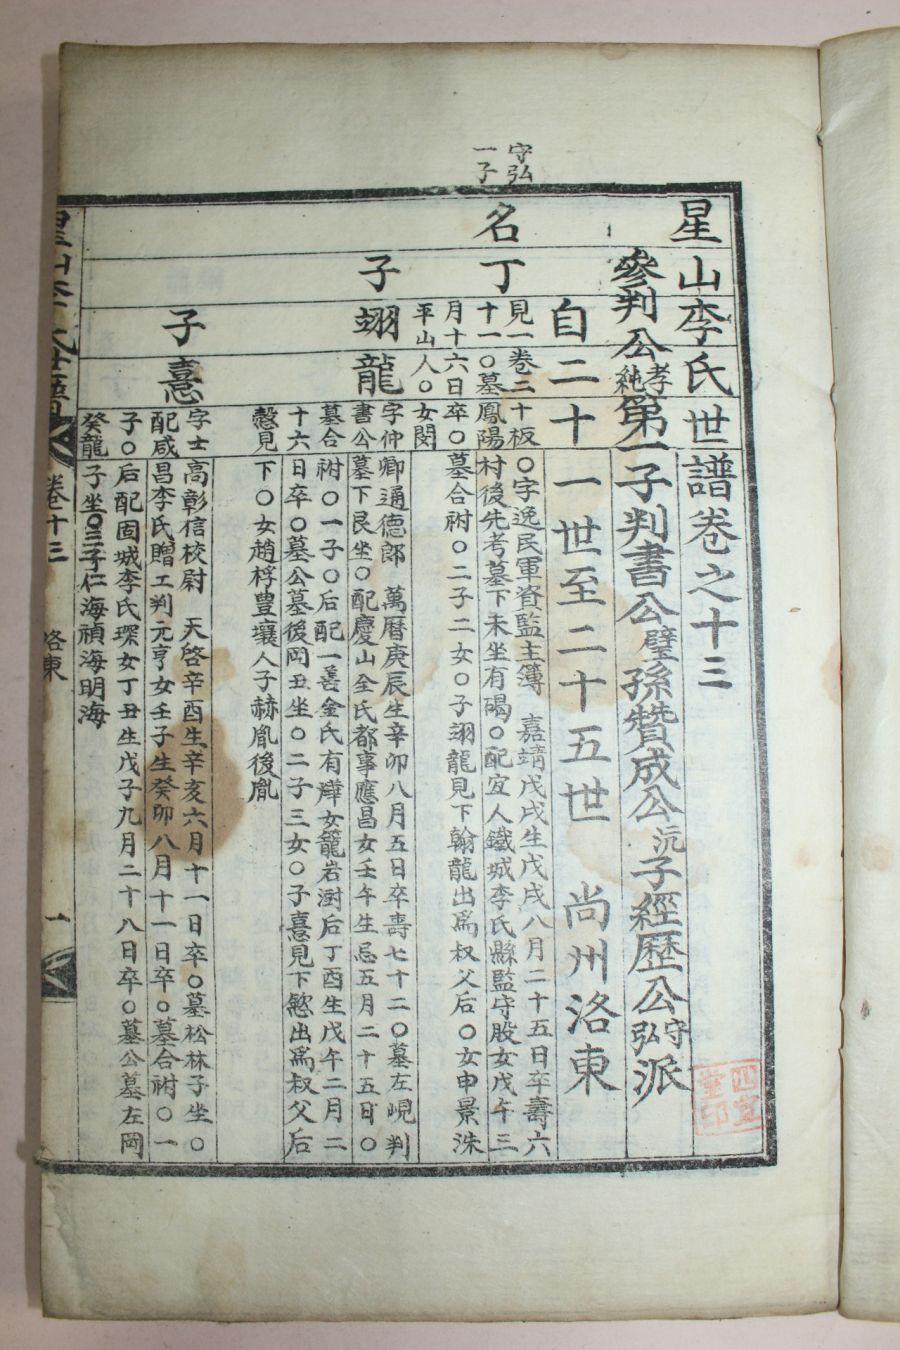 守弘
一子
星山李氏世譜卷之十三
參判公孝純第一子判書公璧孫贊成公沅子經歷公守弘派
自二十一世至二十五世 尚州洛東
名丁
見一卷三十板〇字逸民軍資監主簿 嘉靖戊戌生戊戌八月二十五日卒壽六
十一〇墓鳳陽村後先考墓下未坐有碣〇配宜人鐵城李氏縣監守殷女戊午三
月十六日卒〇墓合祔〇二子二女〇子翊龍見下翰龍出爲叔父后〇女申景洙
平山人〇女閔
子翊龍
字仲卿通德郎 萬曆庚辰生辛卯八月五日卒壽七十二〇墓左峴判
書公墓下艮坐〇配慶山全氏都事應昌女壬午生忌五月二十五日〇
墓合祔〇一子〇后配一善金氏有燁女籠岩澍后丁酉生戊午二月二
十六日卒〇墓公墓後岡丑坐〇二子三女〇子憙見下慜出爲叔父后
慇見下〇女趙桴豊壤人子赫胤後胤
子憙
字士高彰信校尉 天啓辛酉生辛亥六月十一日卒〇墓松林子坐〇
配咸昌李氏贈工判元亨女壬子生癸卯八月十一日卒〇墓合祔〇一
子〇后配固城李氏琛女丁丑生戊子九月二十八日卒〇墓公墓左岡
癸龍子坐〇三子仁海禎海明海
星山李氏世譜 卷十三 洛東 一